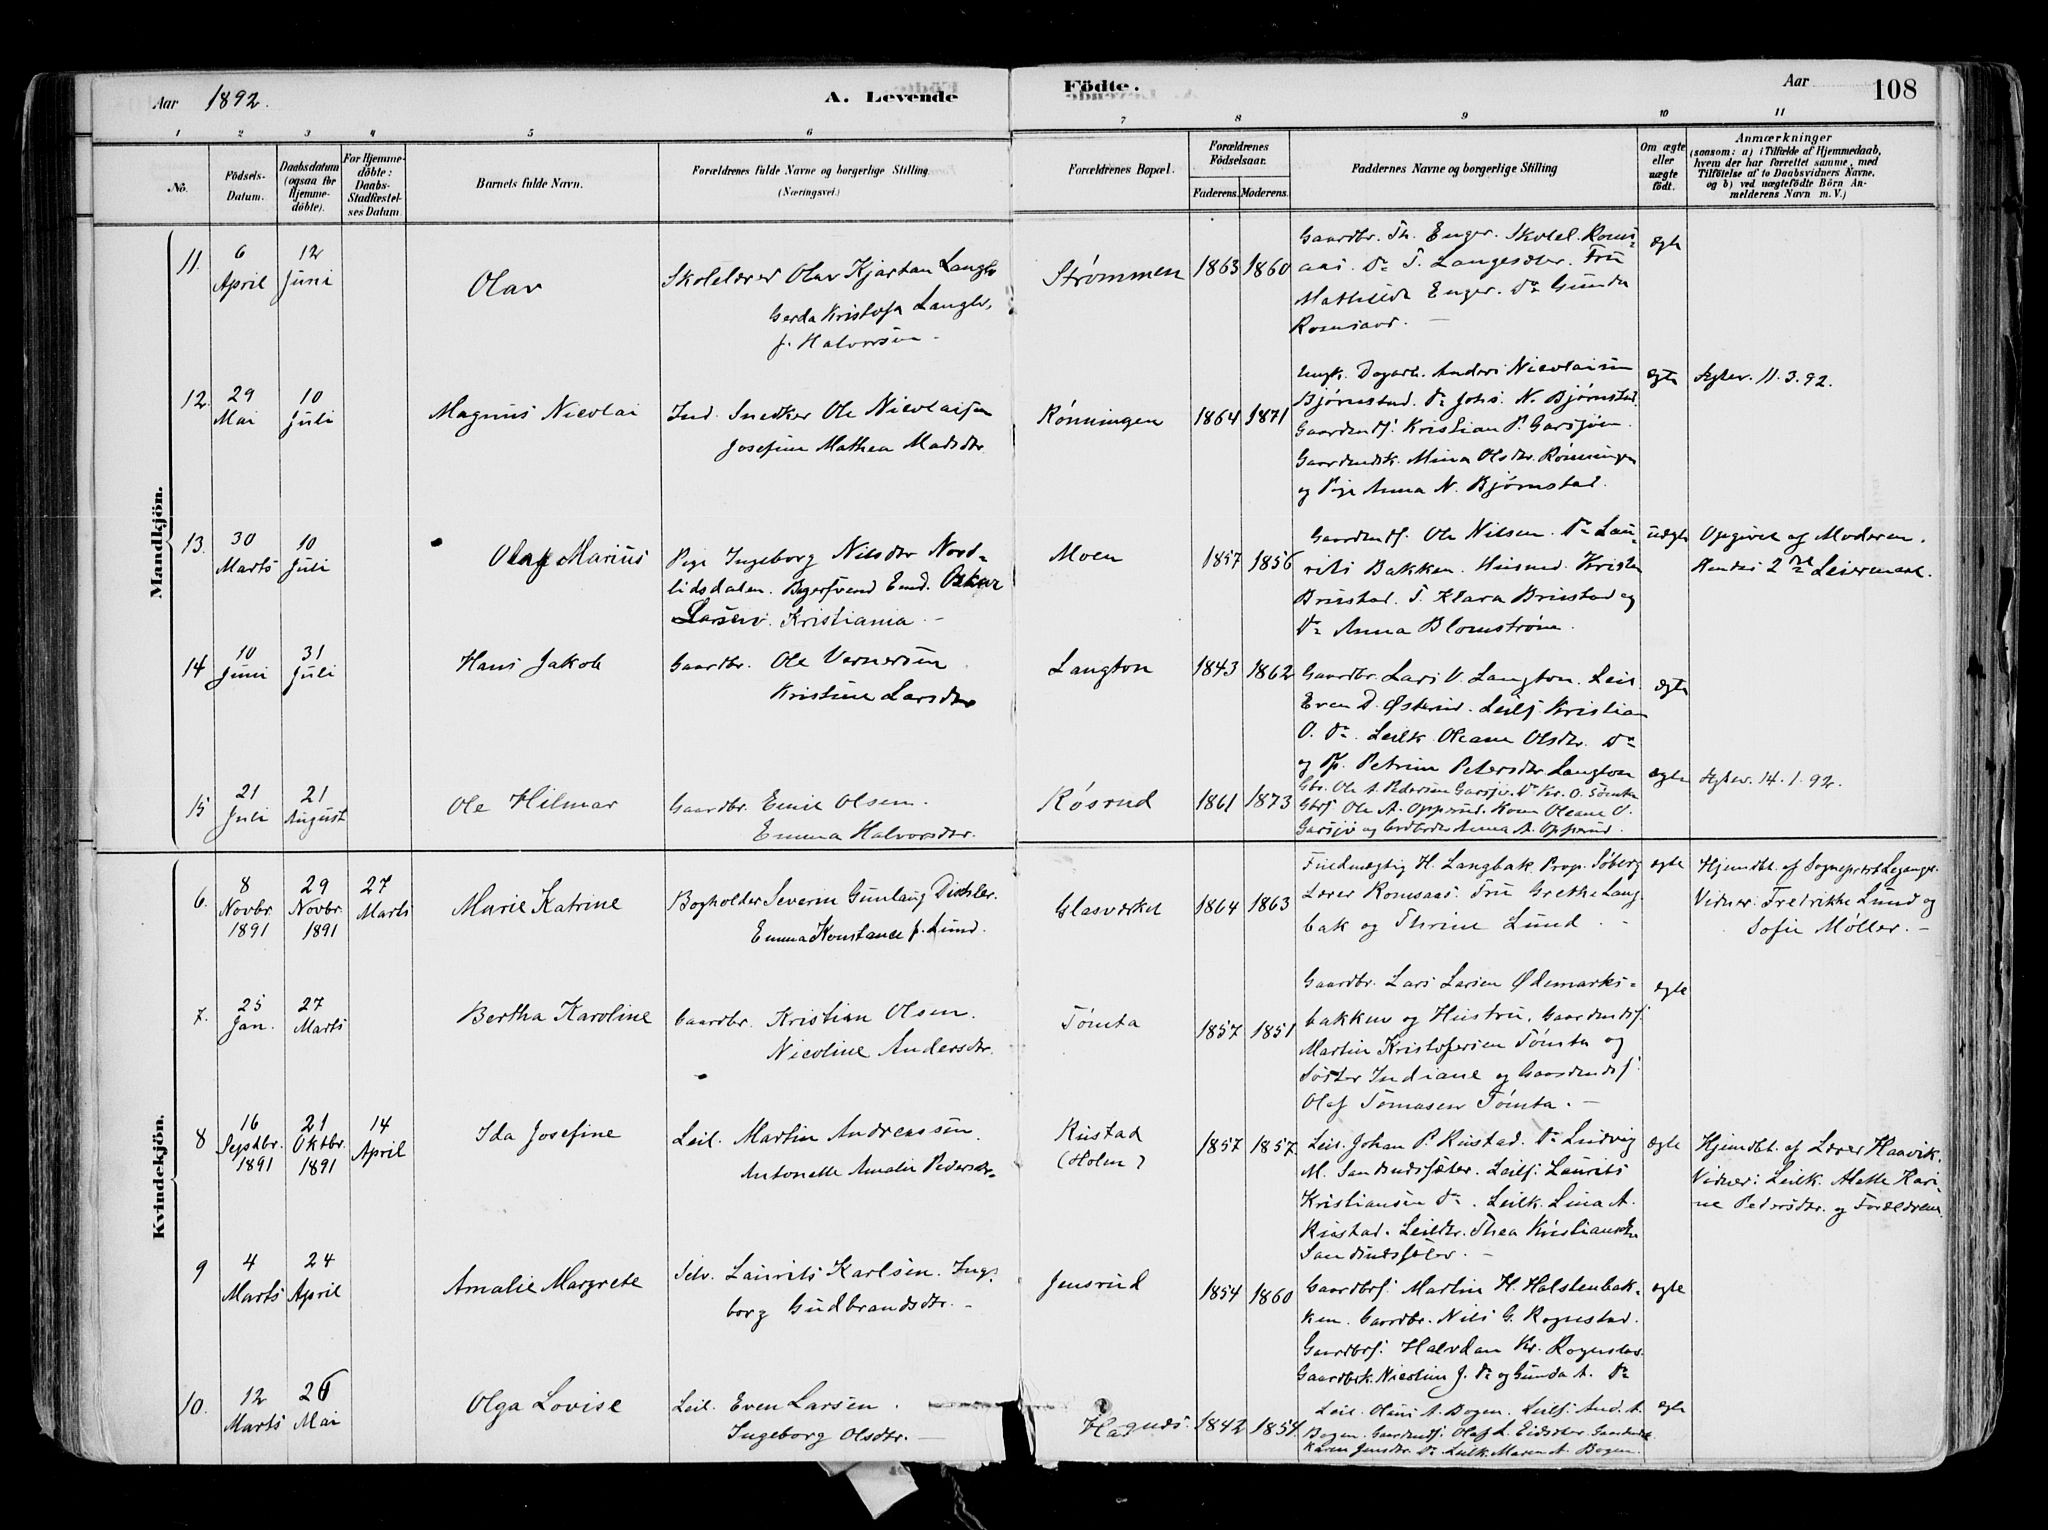 Aar 1892.
A. Levende
Födte.
Aar
108
1 2 3 4 5 6 7 8 9 10 11
No.
Födsels-
Datum.
Daabsdatum
(ogsaa for
Hjemme-
döbte).
For Hjemme-
döbte:
Daabs-
Stadfæstel-
ses Datum.
Barnets fulde Navn.
Forældrenes fulde Navne og borgerlige Stilling
(Næringsvei.)
Forældrenes Bopæl.
Forældrenes
Födselsaar.
Faderens. Moderens.
Faddernes Navne og borgerlige Stilling
Om ægte
eller
uægte
födt.
Anmærkninger
(saasom: a) i Tilfælde af Hjemmedaab,
hvem der har forrettet samme, med
Tilföielse af to Daabsvidners Navne,
og b) ved uægtefödte Börn An-
melderens Navn m. V.)
Mandkjön.
11. 6 April 12 Juni
Olav
Skolelærer Olav Kjartan Langlo
Gerda Kristofa Langlo,
f. Halvorsen.
Strømmen 1863 1860
Gaardbr. Th. Enger. Skolel. Roms-
aas. Do T. Langesæter. Fru
Mathilde Enger. Do Gunda
Romsaas. —
ægte
12. 29 Mai 10 Juli
Magnus Nicolai
Ind. Snedker Ole Nicolaisen
Josefine Mathea Madsdtr.
Rønningen 1864 1871
Ungk. Dagarb. Anders Nicolaisen
Bjørnstad. Do Johs. N. Bjørnstad.
Gaardmdsf. Kristian P. Garsjøen.
Gaardmdsk. Mina Olsdtr. Rønningen
og Pige Anna N. Bjørnstad.
ægte
Ægtev. 11.3.92.
13. 30 Marts 10 Juli
Olaf Marius
Pige Ingeborg Nilsdtr Nord-
lidsdalen. Bagersvend Emd. Oskar
Larsen. Kristiania. —
Moen 1857 1856
Gaardmdsf. Ole Nilsen. Do Lau-
rits Bakken. Huismd. Kristen
Brustad. T. Klara Brustad og
Do Anna Blomstrøm.
uægte
Opgivet af Moderen.
Hendes 2det Leiermaal.
14 10 Juni 31 Juli
Hans Jakob
Gaardbr. Ole Vernersen
Kristine Larsdtr
Langton 1843 1862
Gaardbr. Lars V. Langton. Leil.
Even D. Østerud. Leilf. Kristian
O. Do. Leilk. Oleane Olsdtr. Do
og P. Petrine Petersdtr Langton
ægte
15 21 Juli 21 August
Ole Hilmar
Gaardbr. Emil Olsen.
Emma Halvorsdtr.
Røsrud 1861 1873
Gbr. Ole A. Pedersen Garsjø. Do Kr. O. Tømta
Gbrsf. Ole A. Opperud. Kone Oleane O.
Garsjø og Anna A. Opperud.
ægte
Ægtev. 14.1.92.
Kvindekjön.
6. 8 Novbr. 1891 29 Novbr. 1891 27 Marts
Marie Katrine
Bogholder Severin Gunlaug Distsler.
Emma Konstance f. Lund.
Glasværket 1864 1863
Fuldmægtig H. Langbak. Prop. Søberg
Lærer Romsaas. Fru Grethe Lang-
bak og Thrine Lund. —
ægte
Hjemdbt. af Sogneprest Legangr.
Vidner: Fredrikke Lund og
Sofie Møller. —
7. 25 Jan. 27 Marts
Bertha Karoline
Gaardbr. Kristian Olsen.
Nicoline Andersdtr.
Tømta 1857 1851
Gaardbr. Lars Larsen Ødemarks-
bakken og Hustru. Gaardmdsf.
Martin Kristofersen Tømta og
Søster Indiane og Gaardmdsf.
Olaf Tomasen Tømta. —
ægte
8 16 Septbr. 1891 21 Oktbr. 1891 14 April
Ida Josefine
Leil. Martin Andreassen.
Antonette Amalie Pedersdtr.
Rustad
(Holm) 1857 1857
Leil. Johan P. Rustad. Do Ludvig
M. Sandrudsæter. Leilf. Laurits
Kristiansen Do. Leilk. Lina A.
Rustad. Leildtr. Thea Kristiansdtr
Sandrudsæter. —
ægte
Hjemdbt. af Lærer Haavik.
Vidner: Leilk. Alette Kari-
ne Pedersdtr. og Forældrene.
9 4 Marts 24 April
Amalie Margrete
Selv. Laurits Karlsen. Inge-
borg Gudbrandsdtr. —
Jensrud 1854 1860
Gaardbrsf. Martin H. Holstenbak-
ken. Gaardbr. Nils G. Rognstad.
Gaardbrsf. Halvdan Kr. Rognstad.
Gaardbk. Nicoline J. Do og Gunda A. Do
ægte
10. 12 Marts 26 Mai
Olga Lovise
Leil. Even Larsen.
Ingeborg Olsdtr. —
1842 1854
Leil. Hans A. Bogen. Leilf. And. A.
Bogen. Gaardmdsf. Olaf L. Eidsæter. Gaardmdsk
Karen Jensdtr. Do. Leilk. Maren A. Bogen.
ægte